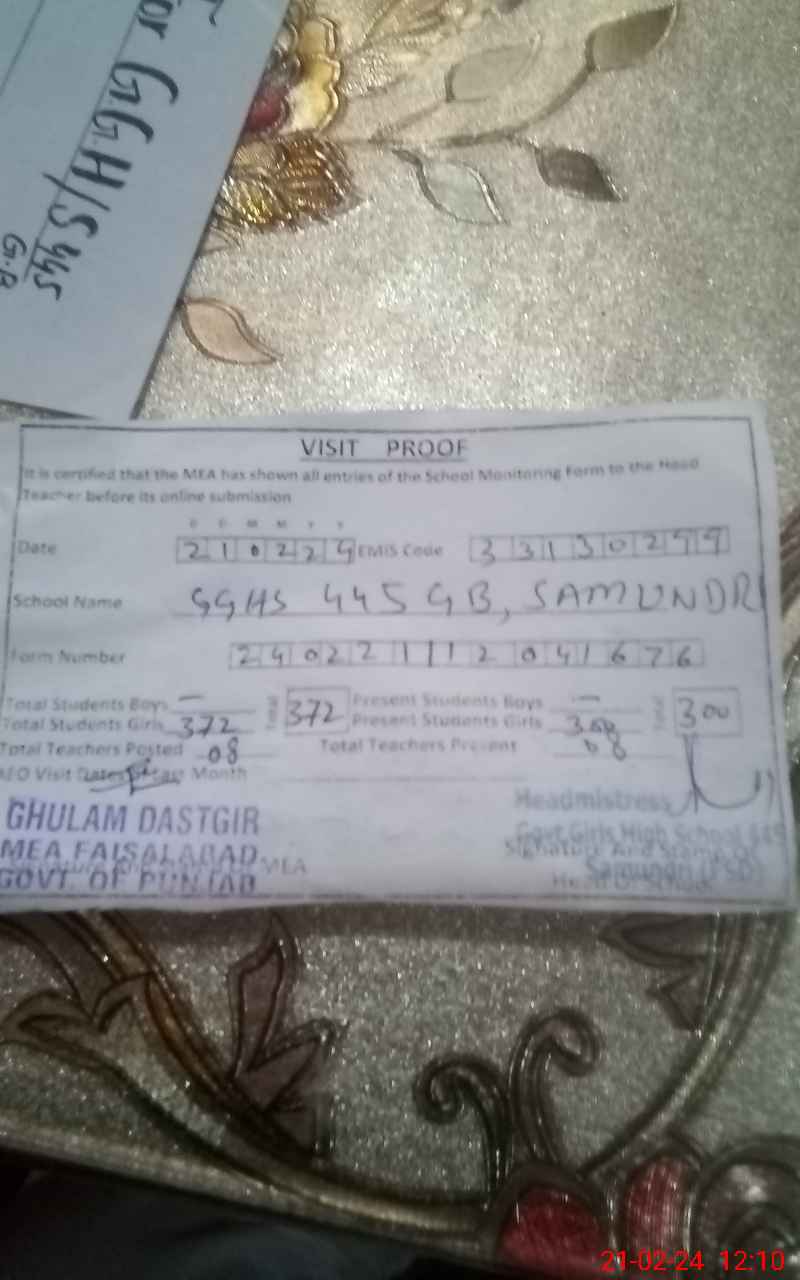 for G.G.H/S 445
G.B
VISIT PROOF
It is certified that the MEA has shown all entries of the School Monitoring Form to the Head
Teacher before its online submission
D D M M Y Y
Date 210224 EMIS Code 33130299
School Name GGHS 445 GB, SAMUNDRI
Form Number 24022111204 1676
Total Students Boys — Total 372 Present Students Boys — Total 300
Total Students Girls 372 Present Students Girls 300
Total Teachers Posted 08 Total Teachers Present 08
AEO Visit Dates of Last Month
GHULAM DASTGIR
MEA FAISALABAD
GOVT. OF PUNJAB
MEA
Headmistress
Govt. Girls High School 445
Signature And Stamp Of
Samundri (FSD)
Head Of School
21-02-24 12:10